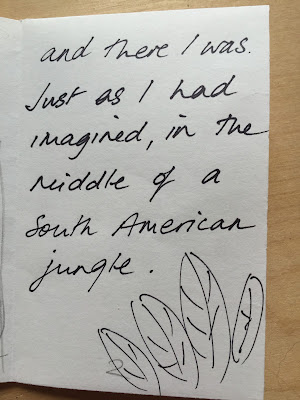 and there I was.
Just as I had
imagined, in the
middle of a
South American
jungle.